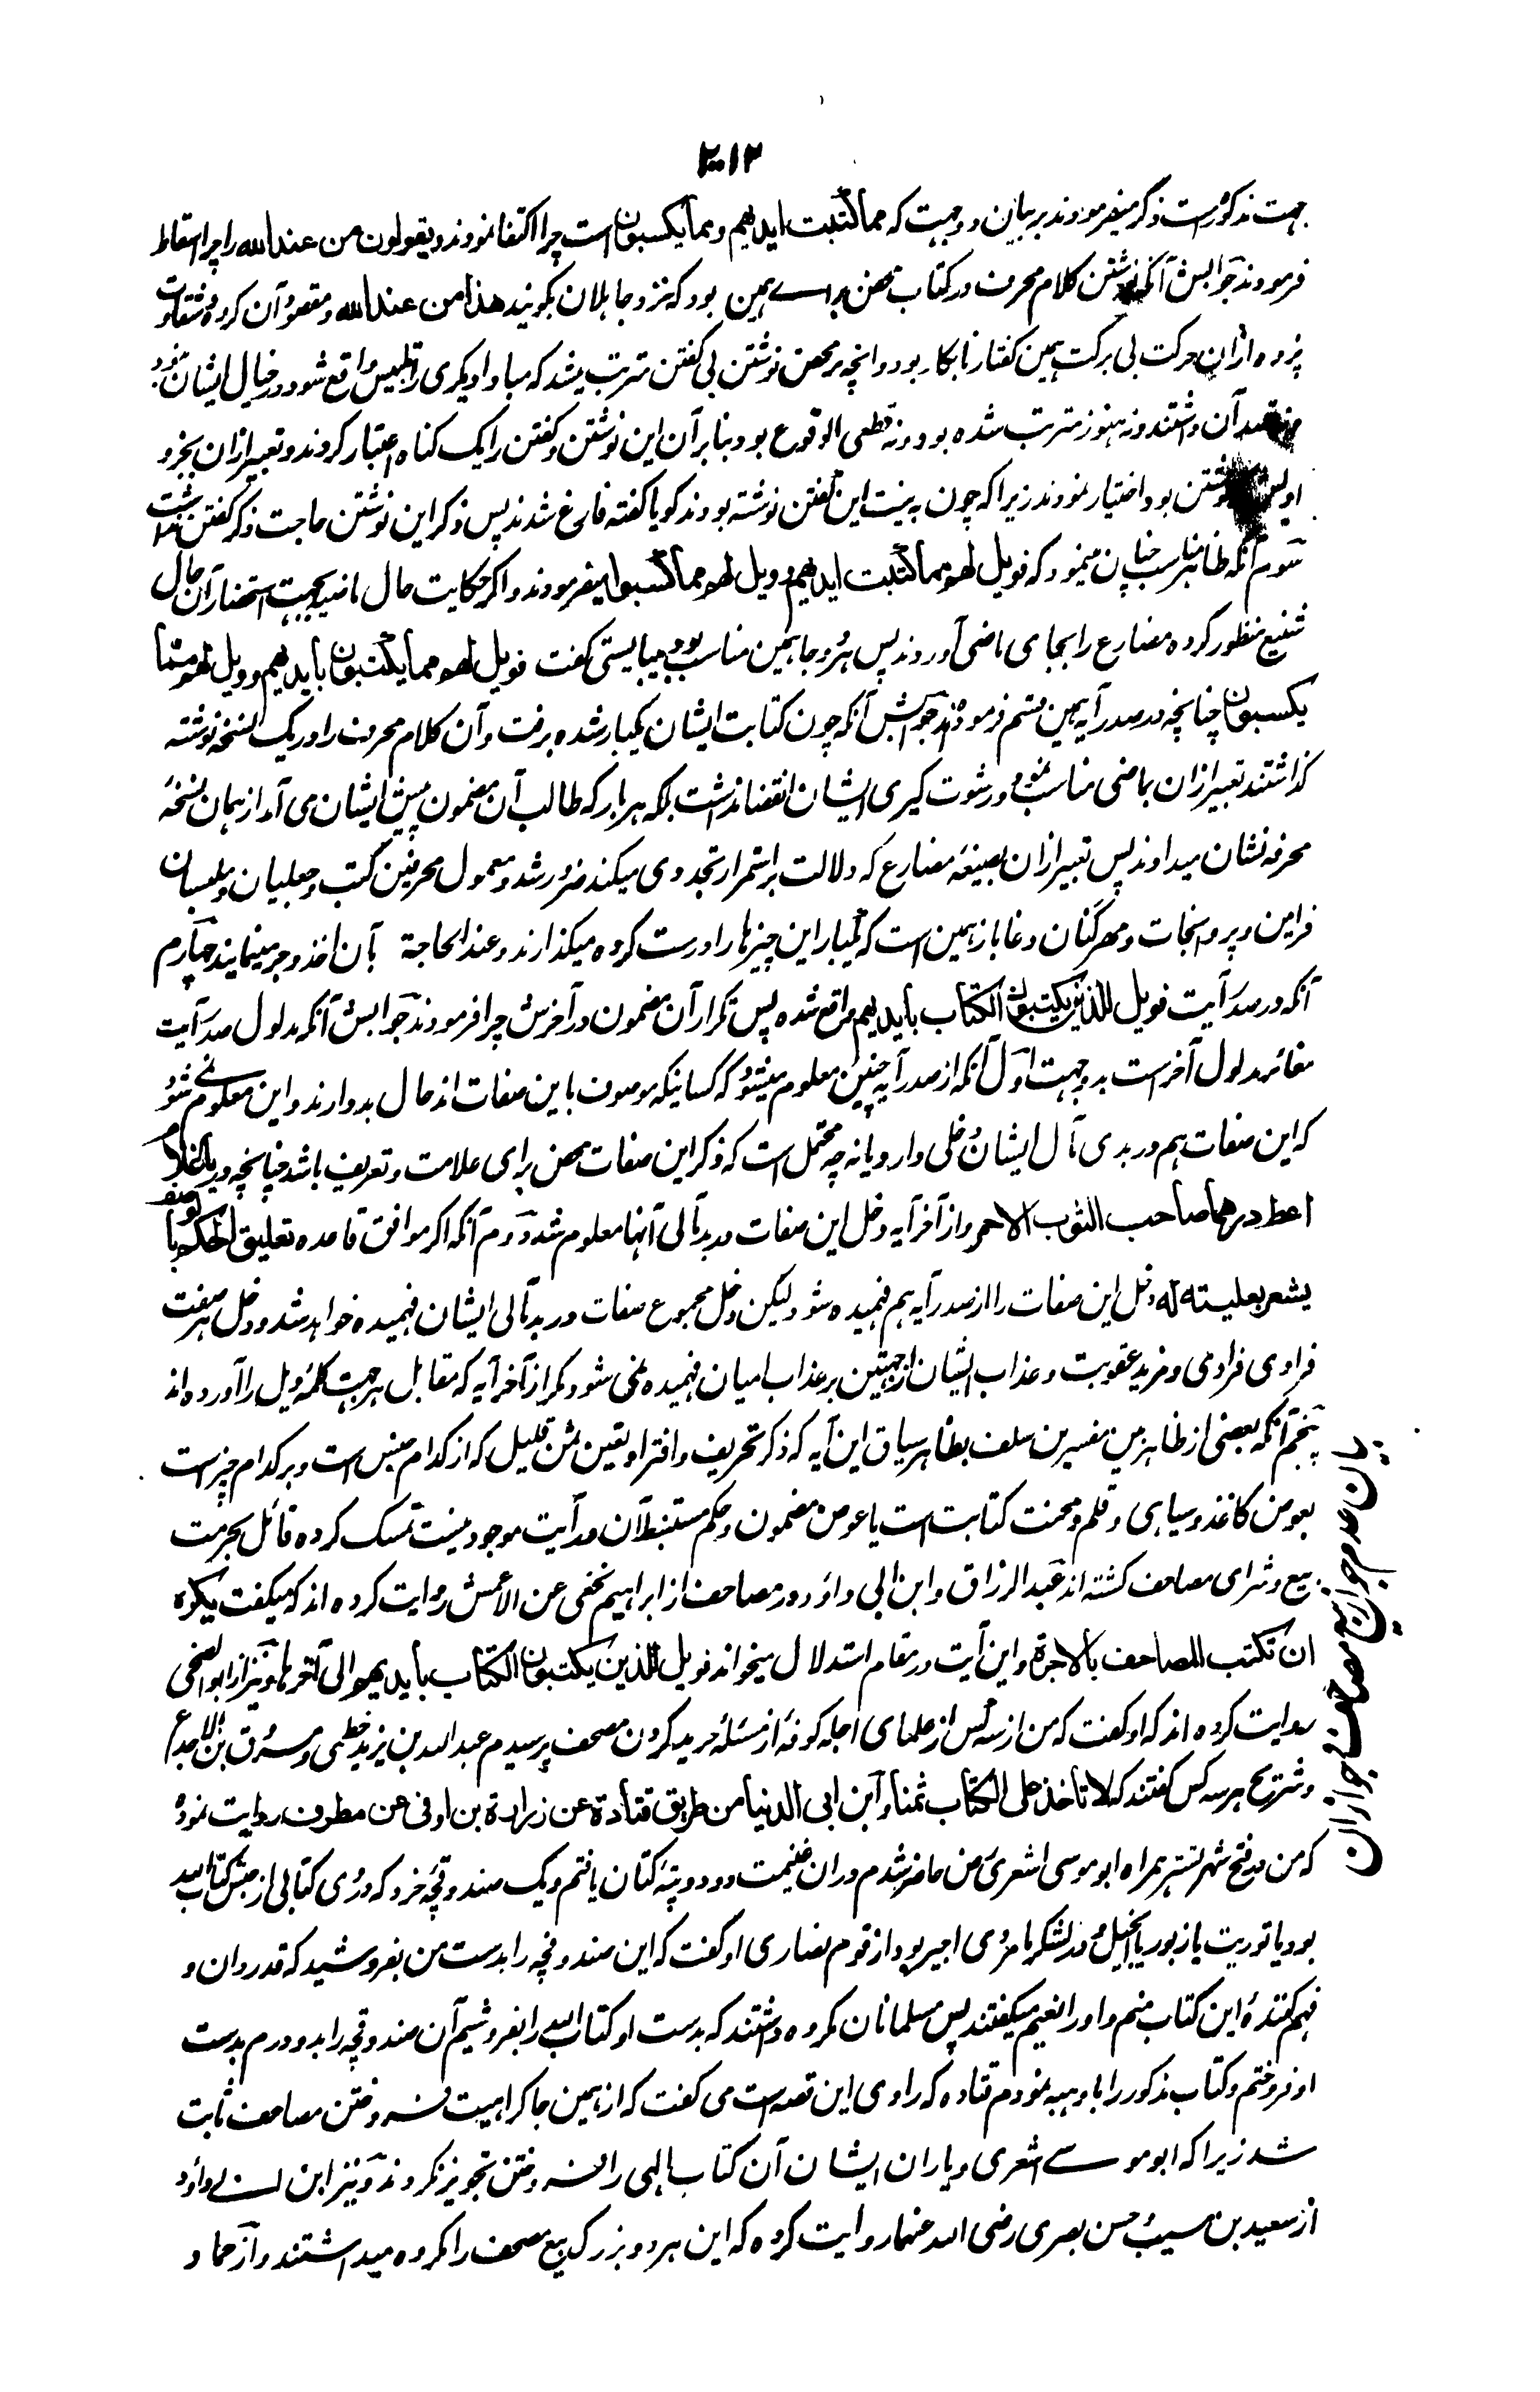 ۲۰۱۳
جهت مذکورست ذکر میفرمودند بر بیان دو جهت که مما کتبت ایدیهم و مما یکسبون است چرا اکتفا نمودند و یقولون من عند الله را چرا اسقاط
فرمودند جوابش آنکه نوشتن کلام محرف در کتاب محض برای همین بود که نزد جاهلان بگویند هذا من عند الله و مقصود آن کروه شقاوت
پژوه ازان حرکت بی برکت همین گفتار نابکار بود و آنچه بر محض نوشتن بی گفتن مترتب میشد که مبادا دیگری را تلبیس واقع شود در خیال ایشان نبود
و نه قصد آن داشتند و نه هنوز مترتب شده بود و نه قطعی الوقوع بود بنا بر آن این نوشتن و گفتن را یک گناه اعتبار کردند و تعبیر ازان بجزو
اولین که نوشتن بود اختیار نمودند زیرا که چون به نیت این گفتن نوشته بودند گویا گفته فارغ شدند پس ذکر این نوشتن حاجت ذکر گفتن نداشت
سوم آنکه ظاهر مناسب چنان مینمود که فویل لهم مما کتبت ایدیهم و ویل لهم مما کسبوا میفرمودند و اگر حکایت حال ماضیه بجهت استحضار آن حال
شنیع منظور کرده مضارع را بجای ماضی آوردند پس هر دو جا همین مناسب بود و میبایستی گفت فویل لهم مما یکتبون بایدیهم و ویل لهم مما
یکسبون چنانچه در صدر آیه همین قسم فرموده‌اند جوابش آنکه چون کتابت ایشان یکبار شده برفت و آن کلام محرف را در یک نسخه نوشته
گذاشتند تعبیر ازان بماضی مناسب نمود و رشوت گیری ایشان انقضا نداشت بلکه هر بار که طالب آن مضمون پیش ایشان می آمد از همان نسخهٔ
محرفه نشان میدادند پس تعبیر ازان بصیغهٔ مضارع که دلالت بر استمرار تجددی میکند ضرور شد و معمول محرفین کتب و جعلیان و ملبسان
فرامین و پروانجات و مهرکنان دغاباز همین است که یکبار این چیزها را درست کرده میگذارند و عند الحاجة بآن اخذ و جر مینمایند چهارم
آنکه در صدر آیت فویل للذین یکتبون الکتاب بایدیهم واقع شده پس تکرار آن مضمون در آخرش چرا فرمودند جوابش آنکه مدلول صدر آیت
مغائر مدلول آخر است بدو جهت اول آنکه از صدر آیه چنین معلوم میشود که کسانیکه موصوف باین صفات اند حال بد دارند و این معلوم نمی شود
که این صفات هم در بدی مآل ایشان دخلی دارد یا نه چه محتمل است که ذکر این صفات محض برای علامت و تعریف باشد چنانچه در یا غلام
اعط درهما صاحب الثوب الاحمر و از آخر آیه دخل این صفات در بدمآلی آنها معلوم شد دوم آنکه اگر موافق قاعده تعلیق الحکم بالوصف
یشعر بعلیته له دخل این صفات را از صدر آیه هم فهمیده شود لیکن دخل مجموع صفات در بدمآلی ایشان فهمیده خواهد شد و دخل هر صفت
فرادی فرادی و مزید عقوبت و عذاب ایشان ازجهتین بر عذاب امیان فهمیده نمی شود مگر از آخر آیه که مقابل هر جهت کلمهٔ ویل را آورده اند
پنجم آنکه بعضی از ظاهربین مفسرین سلف بظاهر سیاق این آیه که ذکر تحریف و افترا و تعین ثمن قلیل که از کدام جنس است و بر کدام چیز است
بعوض کاغذ و سیاهی و قلم و محنت کتابت است یا عوض مضمون و حکم مستنبط آن در آیت موجود نیست تمسک کرده قائل بحرمت
بیع و شرای مصاحف گشته اند عبد الرزاق و ابن ابی داؤد در مصاحف از ابراهیم نخعی عن الاعمش روایت کرده اند که میگفت یکره
ان تکتب المصاحف بالاجرة و این آیت در مقام استدلال میخواند فویل للذین یکتبون الکتاب بایدیهم الی آخرها و نیز از ابو الضحی
روایت کرده اند که او گفت که من از سه کس از علمای اجلهٔ کوفه از مسئلهٔ خرید کردن مصحف پرسیدم عبد الله بن یزید خطمی و مسروق بن الاجدع
و شریح هر سه کس گفتند که لا تاخذ علی الکتاب ثمنا و ابن ابی الدنیا من طریق قتادة عن زرارة بن اوفی عن مطرف روایت نموده
که من در فتح شهر تستر همراه ابو موسی اشعری من حاضر شدم دران غنیمت دو دوپتهٔ کتان یافتم و یک صندوقچهٔ خرد که در وی کتابی از جنس کتاب الله
بود یا توریت یا زبور یا انجیل و در لشکر ما مردی اجیر بود از قوم نصاری او گفت که این صندوقچه را بدست من بفروشید که قدردان و
فهم کنندهٔ این کتاب منم و او را نعیم میگفتند پس مسلمانان مکروه داشتند که بدست او کتاب الله را بفروشیم آن صندوقچه را بدو درم بدست
او فروختم و کتاب مذکور را باو هبه نمودم قتاده که راوی این قصه است می گفت که از همین جا کراهیت فروختن مصاحف ثابت
شد زیرا که ابو موسی اشعری و یاران ایشان آن کتاب الهی را فروختن تجویز نکردند و نیز ابن ابی داؤد
از سعید بن مسیب و حسن بصری رضی الله عنهما روایت کرده که این هر دو بزرگ بیع مصحف را مکروه میداشتند و از حماد
بیان عدم جواز بیع مصاحف و جواز آن